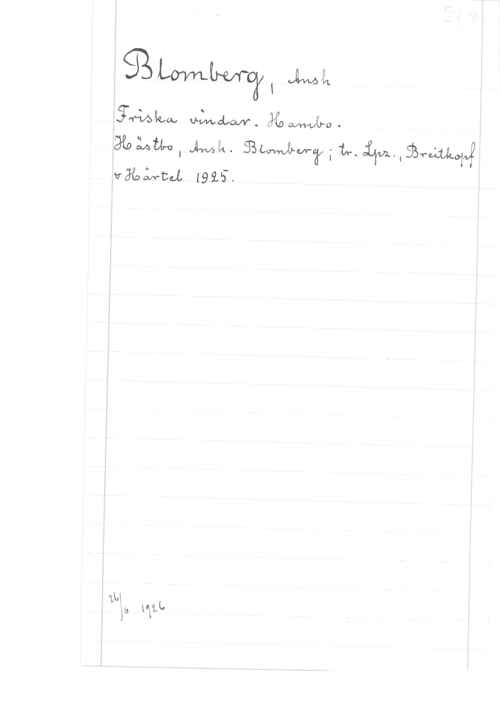 Blomberg, Ansh
Friska vindar. Hambo.
Hästbo, Ansh. Blomberg; tr. Lpz., Breitkopf
v Härtel 1925.
26/6 1926